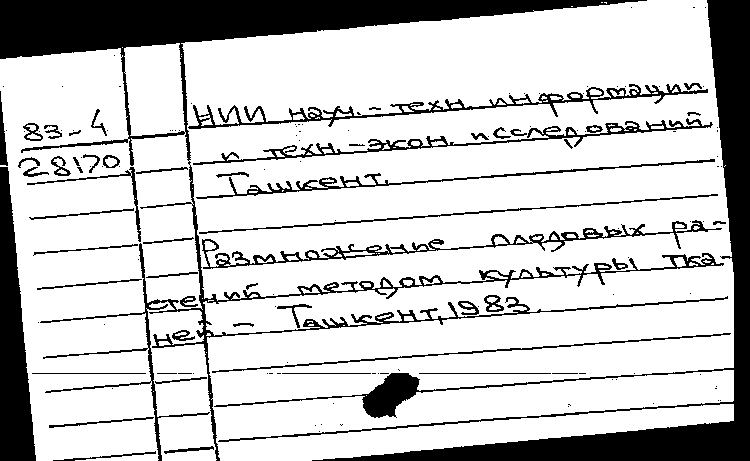 83-4
28170
НИИ науч.-техн. информации
и техн.-экон. исследований.
Ташкент.
Размножение плодовых ра-
стений методом культуры тка-
ней. - Ташкент, 1983.